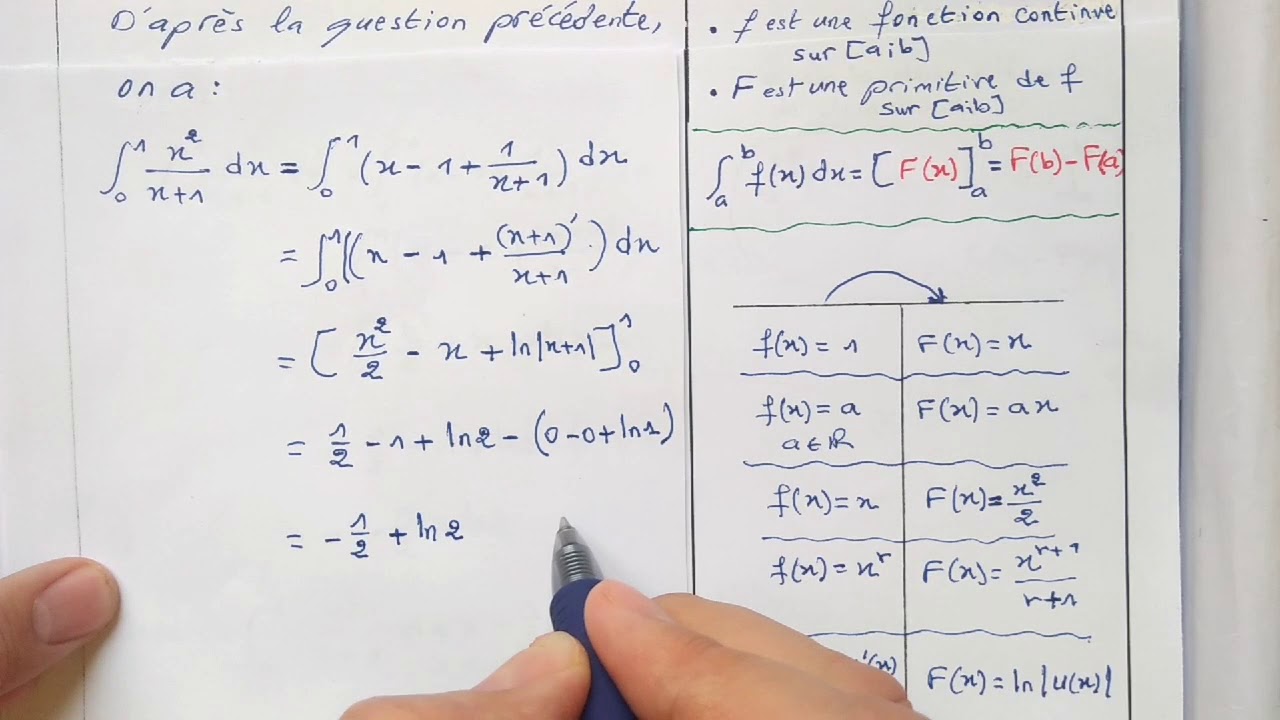 D'après la question précédente,
on a :
∫₀¹ x²/(x+1) dx = ∫₀¹ (x - 1 + 1/(x+1)) dx
= ∫₀¹ ((x - 1 + (x+1)'/(x+1)) dx
= [x²/2 - x + ln|x+1|]₀¹
= 1/2 - 1 + ln2 - (0-0+ln1)
= -1/2 + ln2
• f est une fonction continue
sur [a;b]
• F est une primitive de f
sur [a;b]
∫ₐᵇ f(x) dx = [F(x)]ₐᵇ = F(b) - F(a)
f(x) = 1 F(x) = x
f(x) = a F(x) = ax
a ∈ ℝ
f(x) = x F(x) = x²/2
f(x) = xʳ F(x) = xʳ⁺¹/(r+1)
'(x) F(x) = ln|u(x)|